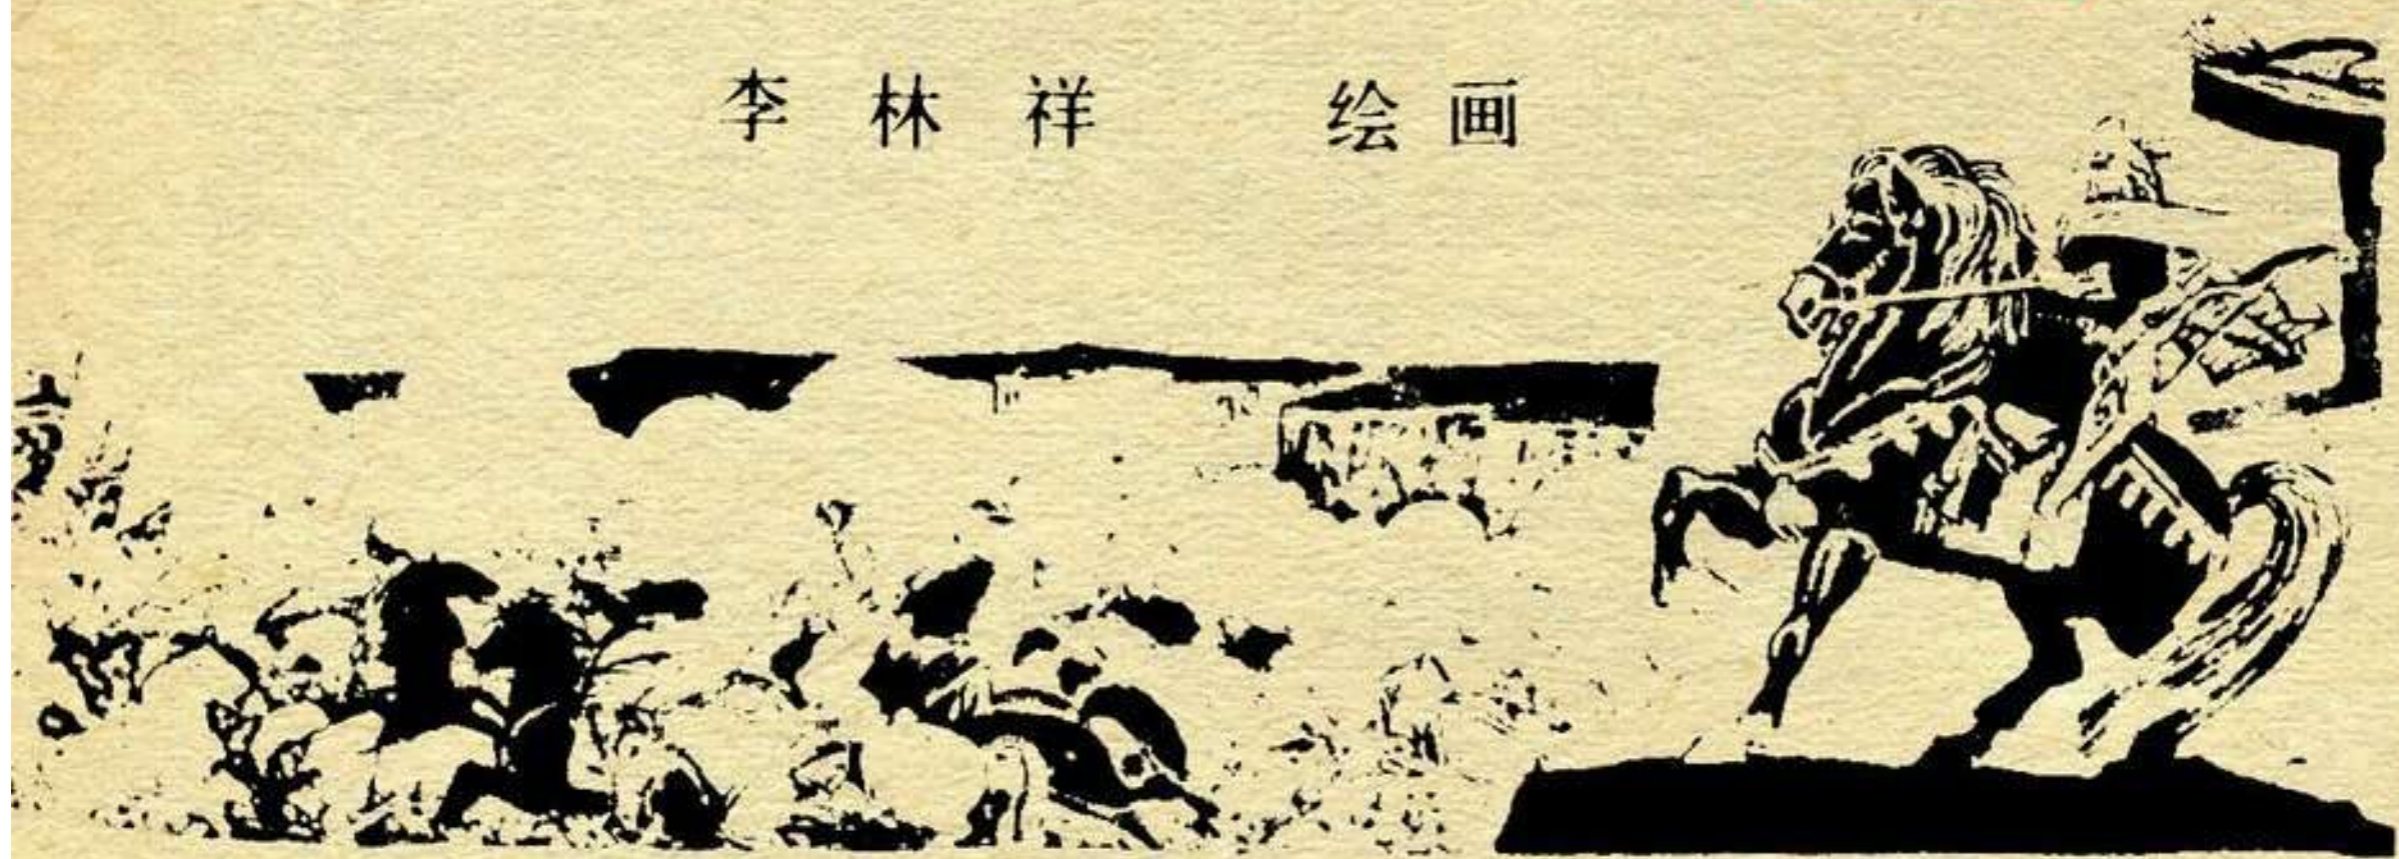 李林祥 绘画